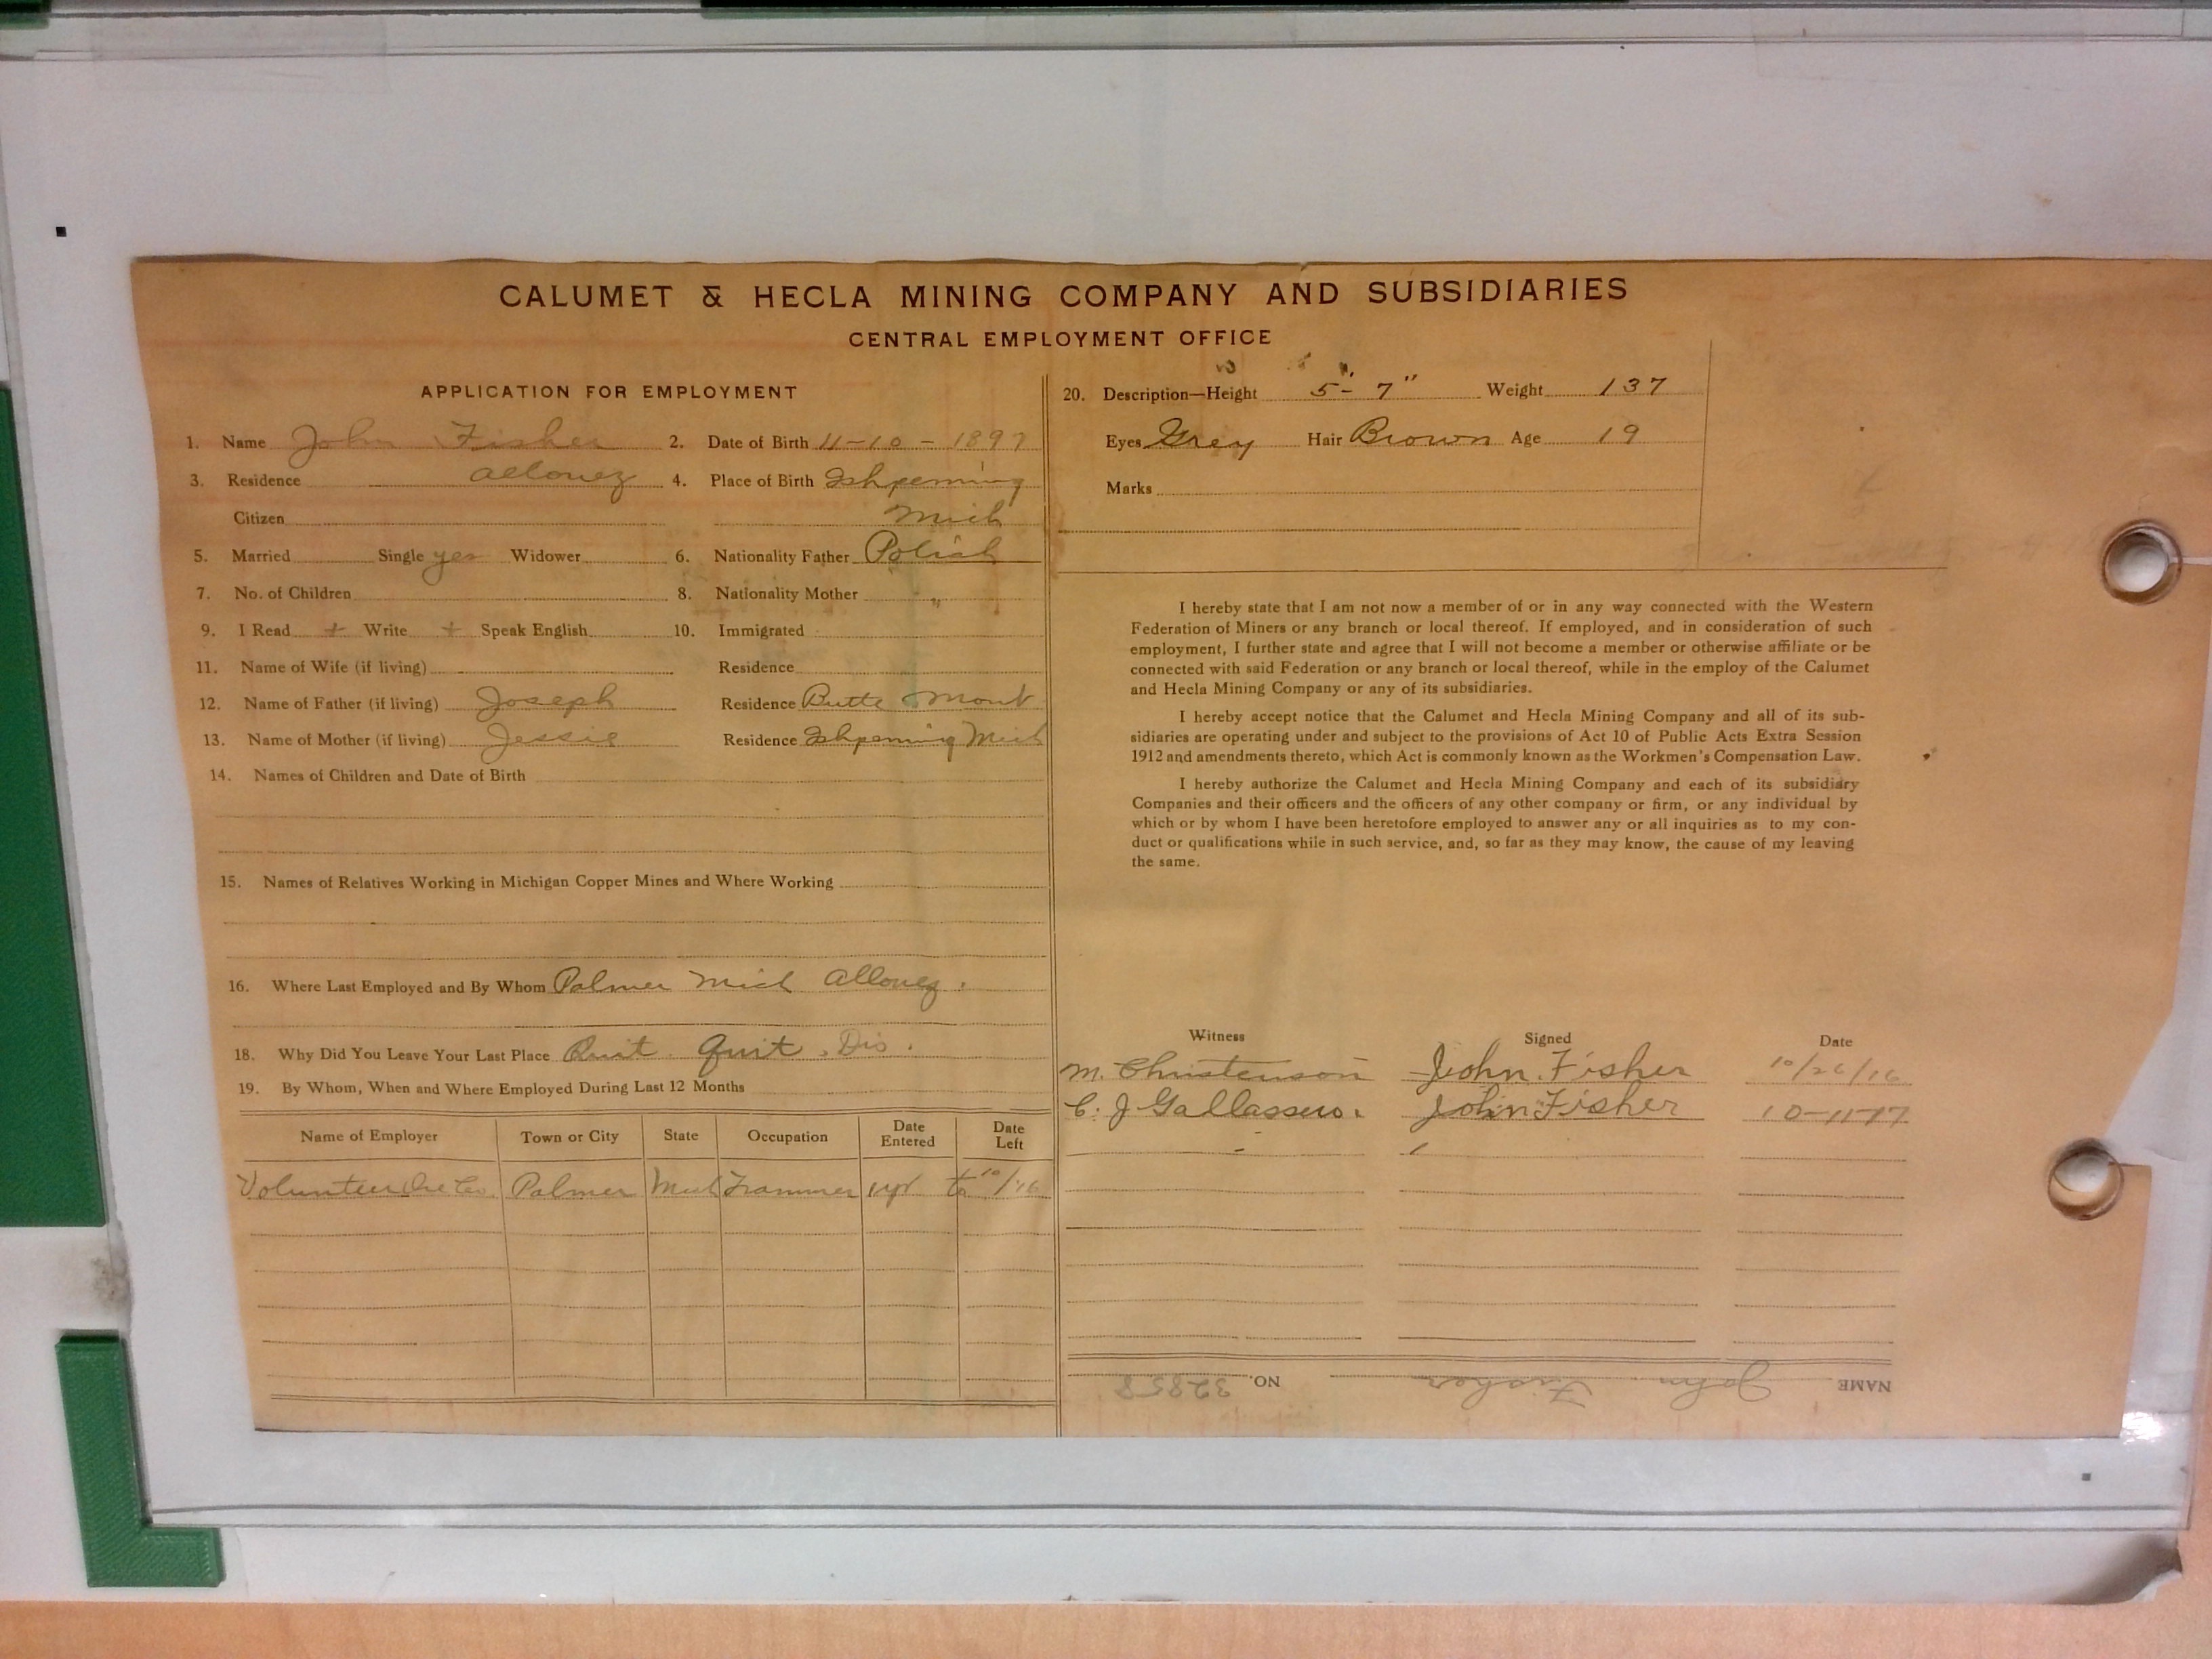 CALUMET & HECLA MINING COMPANY AND SUBSIDIARIES
CENTRAL EMPLOYMENT OFFICE
APPLICATION FOR EMPLOYMENT
1. Name John Fisher 2. Date of Birth 4-10-1897
3. Residence Allouez 4. Place of Birth Ishpeming
Citizen Mich
5. Married Single yes Widower 6. Nationality Father Polish
7. No. of Children 8. Nationality Mother "
9. I Read + Write + Speak English 10. Immigrated
11. Name of Wife (if living) Residence
12. Name of Father (if living) Joseph Residence Butte Mont
13. Name of Mother (if living) Jessie Residence Ishpeming Mich
14. Names of Children and Date of Birth
15. Names of Relatives Working in Michigan Copper Mines and Where Working
16. Where Last Employed and By Whom Palmer Mich Allouez.
18. Why Did You Leave Your Last Place Quit. Quit. Dis.
19. By Whom, When and Where Employed During Last 12 Months
Name of Employer Town or City State Occupation Date Entered Date Left
Volunteer Ore Co. Palmer Mich Trammer 1 yr to 10/16
20. Description—Height 5'- 7" Weight 137
Eyes Grey Hair Brown Age 19
Marks
I hereby state that I am not now a member of or in any way connected with the Western
Federation of Miners or any branch or local thereof. If employed, and in consideration of such
employment, I further state and agree that I will not become a member or otherwise affiliate or be
connected with said Federation or any branch or local thereof, while in the employ of the Calumet
and Hecla Mining Company or any of its subsidiaries.
I hereby accept notice that the Calumet and Hecla Mining Company and all of its sub-
sidiaries are operating under and subject to the provisions of Act 10 of Public Acts Extra Session
1912 and amendments thereto, which Act is commonly known as the Workmen's Compensation Law.
I hereby authorize the Calumet and Hecla Mining Company and each of its subsidiary
Companies and their officers and the officers of any other company or firm, or any individual by
which or by whom I have been heretofore employed to answer any or all inquiries as to my con-
duct or qualifications while in such service, and, so far as they may know, the cause of my leaving
the same.
Witness Signed Date
M. Christenson John Fisher 10/26/16
C. J Gallassero. John Fisher 10-11-17
NAME John Fisher NO. 32858